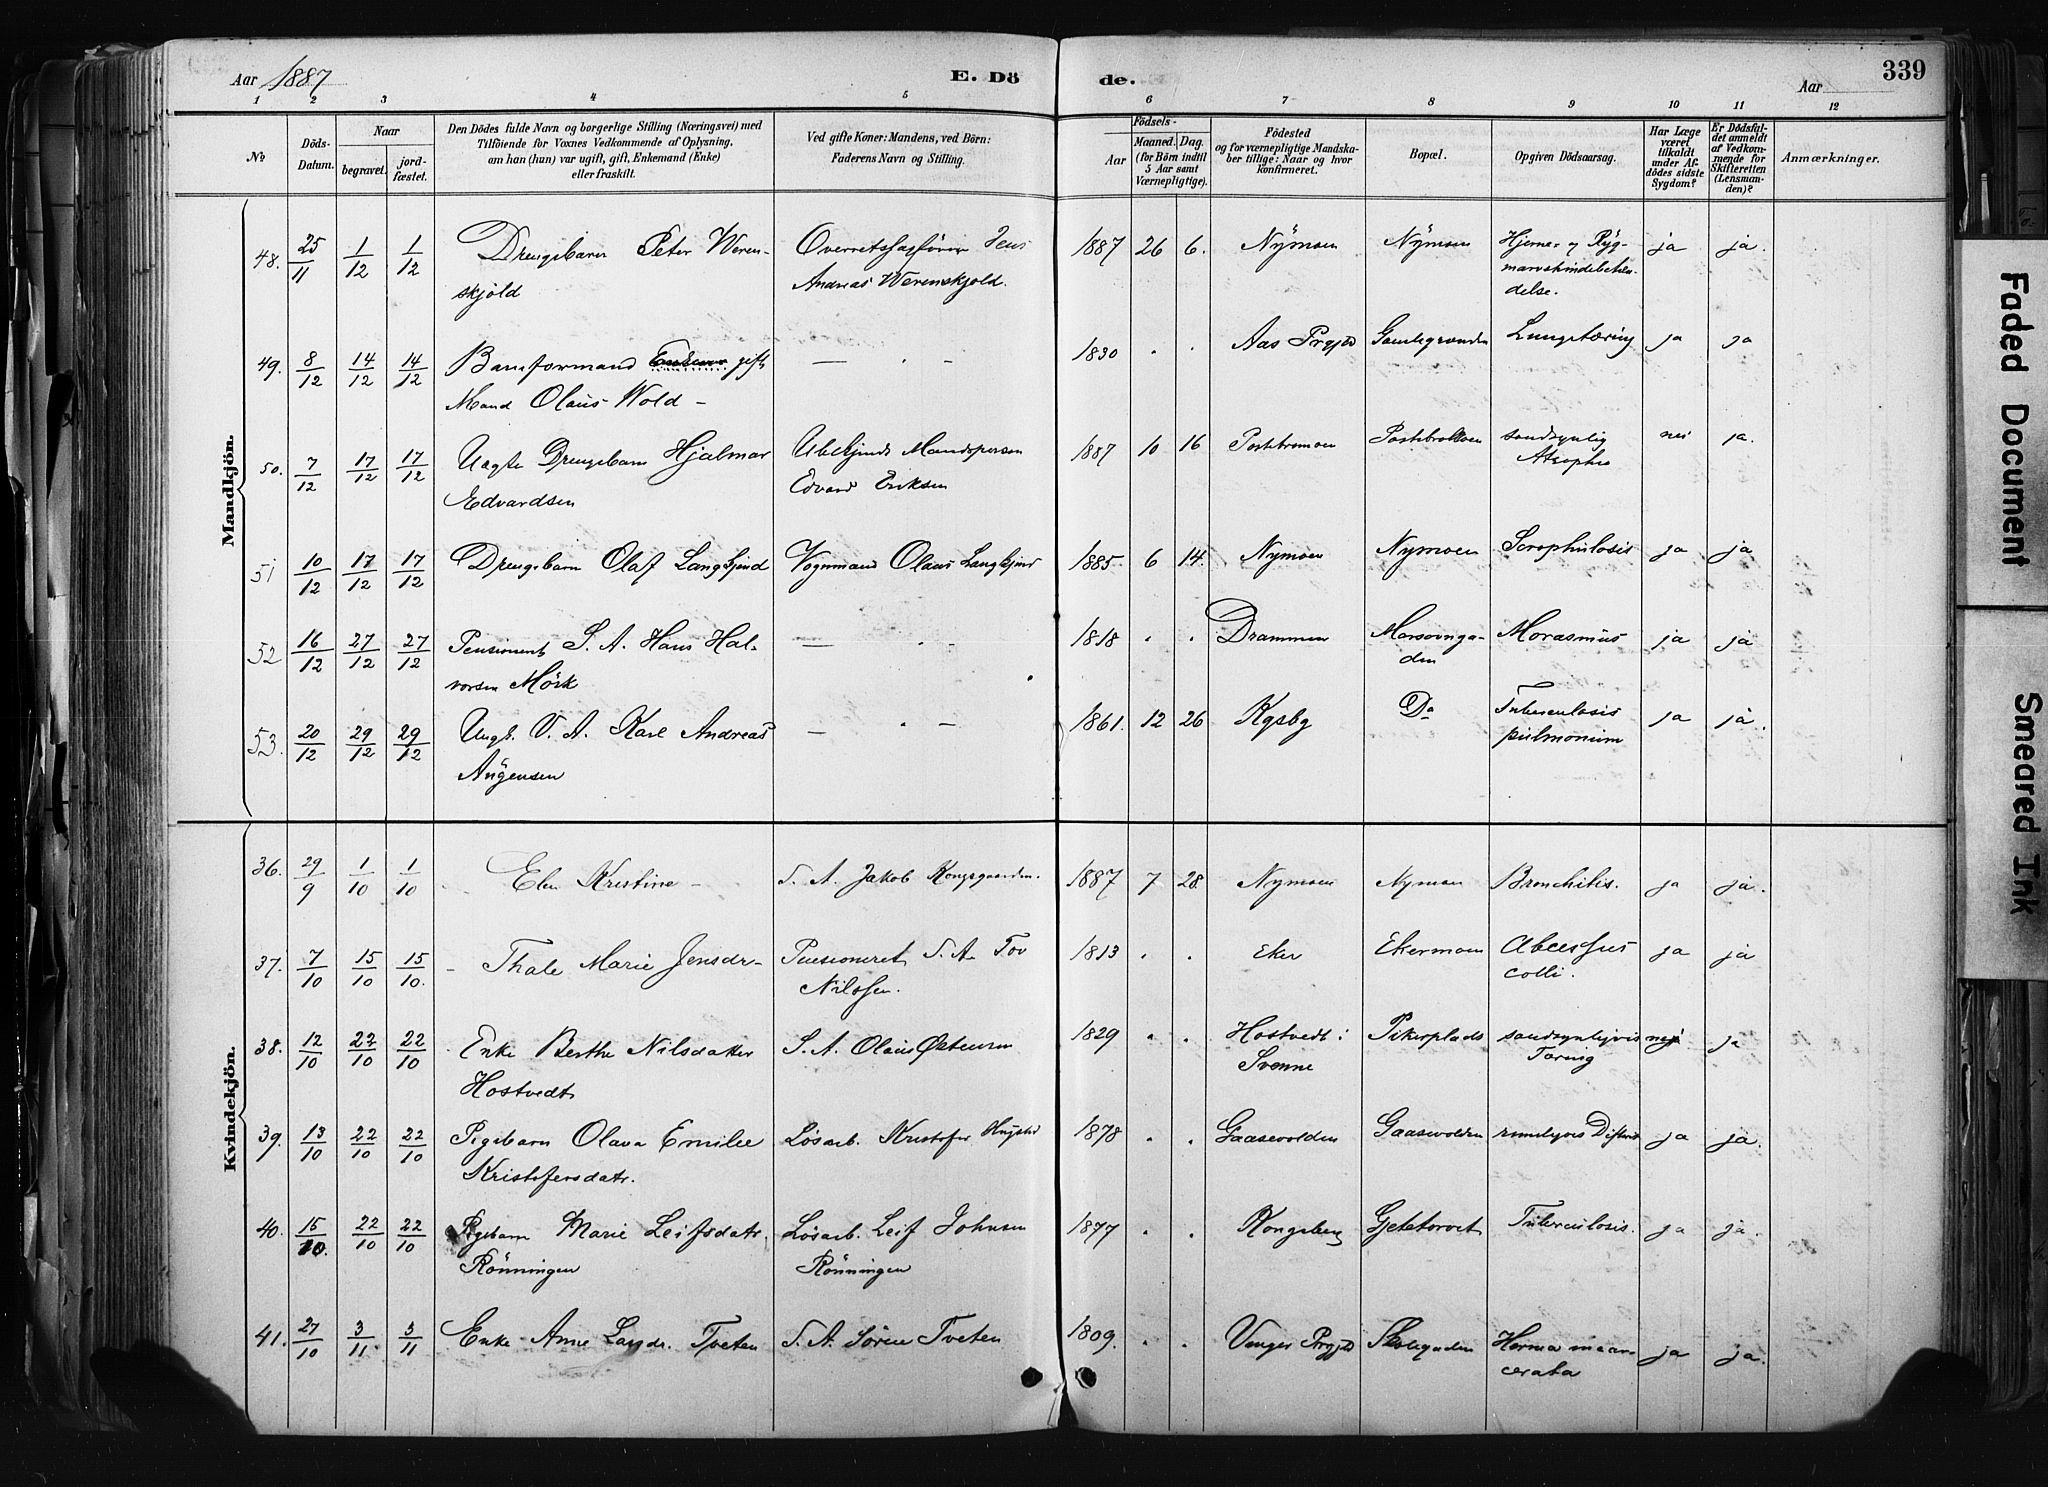 Aar 1887 E. Dö
de. Aar 339
1 2 3 4 5 6 7 8 9 10 11 12
No
Döds-Datum.
Naar
begravet.
jord-fæstet.
Den Dödes fulde Navn og borgerlige Stilling (Næringsvei) med
Tilföiende for Voxnes Vedkommende af Oplysning,
om han (hun) var ugift, gift, Enkemand (Enke)
eller fraskilt.
Ved gifte Koner: Mandens, ved Börn:
Faderens Navn og Stilling.
Födsels-
Aar
Maaned. Dag.
(for Börn indtil
5 Aar samt
Værnepligtige).
Födested
og for værnepligtige Mandska-
ber tillige: Naar og hvor
konfirmeret.
Bopæl.
Opgiven Dödsaarsag.
Har Læge
været
tilkaldt
under Af-
dödes sidste
Sygdom?
Er Dödsfal-
det anmeldt
af Vedkom-
mende for
Skifteretten
(Lensman-
den)?
Anmærkninger.
Mandkjön.
48. 25/11 1/12 1/12 Drengebarn Peter Weren- Overretssagförer Jens 1887 26 6. Nÿmoen Nÿmoen Hjerne- og Ryg- ja ja.
skjöld Andreas Werenskjold. marvshindebetæn-
delse.
49. 8/12 14/12 14/12 Baneformand gift — " — 1830 " " Aas Prgjd Gamlegrunden Lungetæring ja ja
Mand Olaus Wold —
50. 7/12 17/12 17/12 Uægte Drengebarn Hjalmar Ubekjendt Mandsperson 1887 10 16 sandsynlig nei ja.
Edvardsen Edvard Eriksen
51 10/12 17/12 17/12 Drengebarn Olaf Langkjend Vognmand Olaus Langkjend 1885. 6 14. Nymoen Nymoen Scrophulosis ja ja
52 16/12 27/12 27/12 Pensionent S. A. Hans Hal- — " — 1818 " " Drammen Morasmus ja ja
vorsen Mörk
53. 20/12 29/12 29/12 Ungk. Karl Andreas — " — 1861. 12 26 Kgsbg Do Tuberculosis ja ja.
pulmonum
Kvindekjön.
36. 29/9 1/10 1/10 Elen Kristine — S. A. Jakob Kongsgaarden. 1887 7 28 Nymoen Nymoen Bronchitis. ja ja.
37. 7/10 15/10 15/10. Thale Marie Jensdr— Pensioneret S. A. Tov 1813 " " Eker Ekermoen Abcessus ja ja
Nilssen. colli.
38. 12/10 22/10 22/10 Enke Berthe Nilsdatter S. A. Olaus Østensen 1829 " " Hostvedt i Pikerplads sandsynligvis nei ja
Hostvedt Svenne Tæring
39. 13/10 22/10 22/10 Pigebarn Olava Emilie Løsarb. Kristofer 1878 " " Gaasevolden Gaasevolden ja ja.
Kristofersdatr.
40. 15/10. 22/10 22/10 Pigebarn Marie Leifsdatr. Løsarb. Leif Johnsen 1877 " " Kongsberg Gjetetorvet Tuberculosis. ja ja.
Rönningen Rönningen
41. 27/10 3/11 3/11 Enke Anne Tveten S. A. Sören Tveten 1809. " " Unger Prgjd Skolegaden ja ja.
Faded Document
Smeared Ink